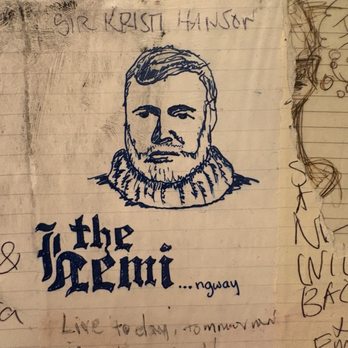 SIR KRISTI HANSON
the
hemi
...ngway
&
a
Live today, tommorrow
WIL
BAC